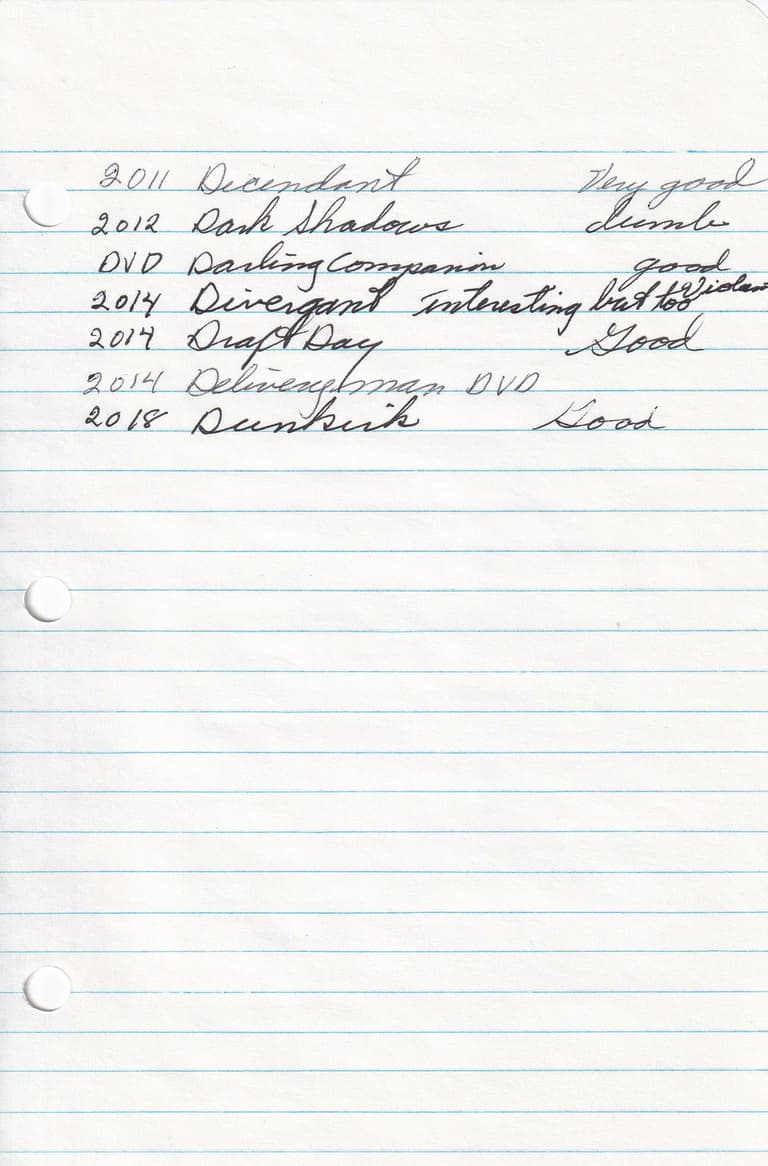 2011 Decendant Very good
2012 Dark Shadows dumb
DVD Darling Companion good
2014 Divergant interesting but too
2014 Draft Day Good
2014 Delivery man DVD
2018 Dunkirk Good